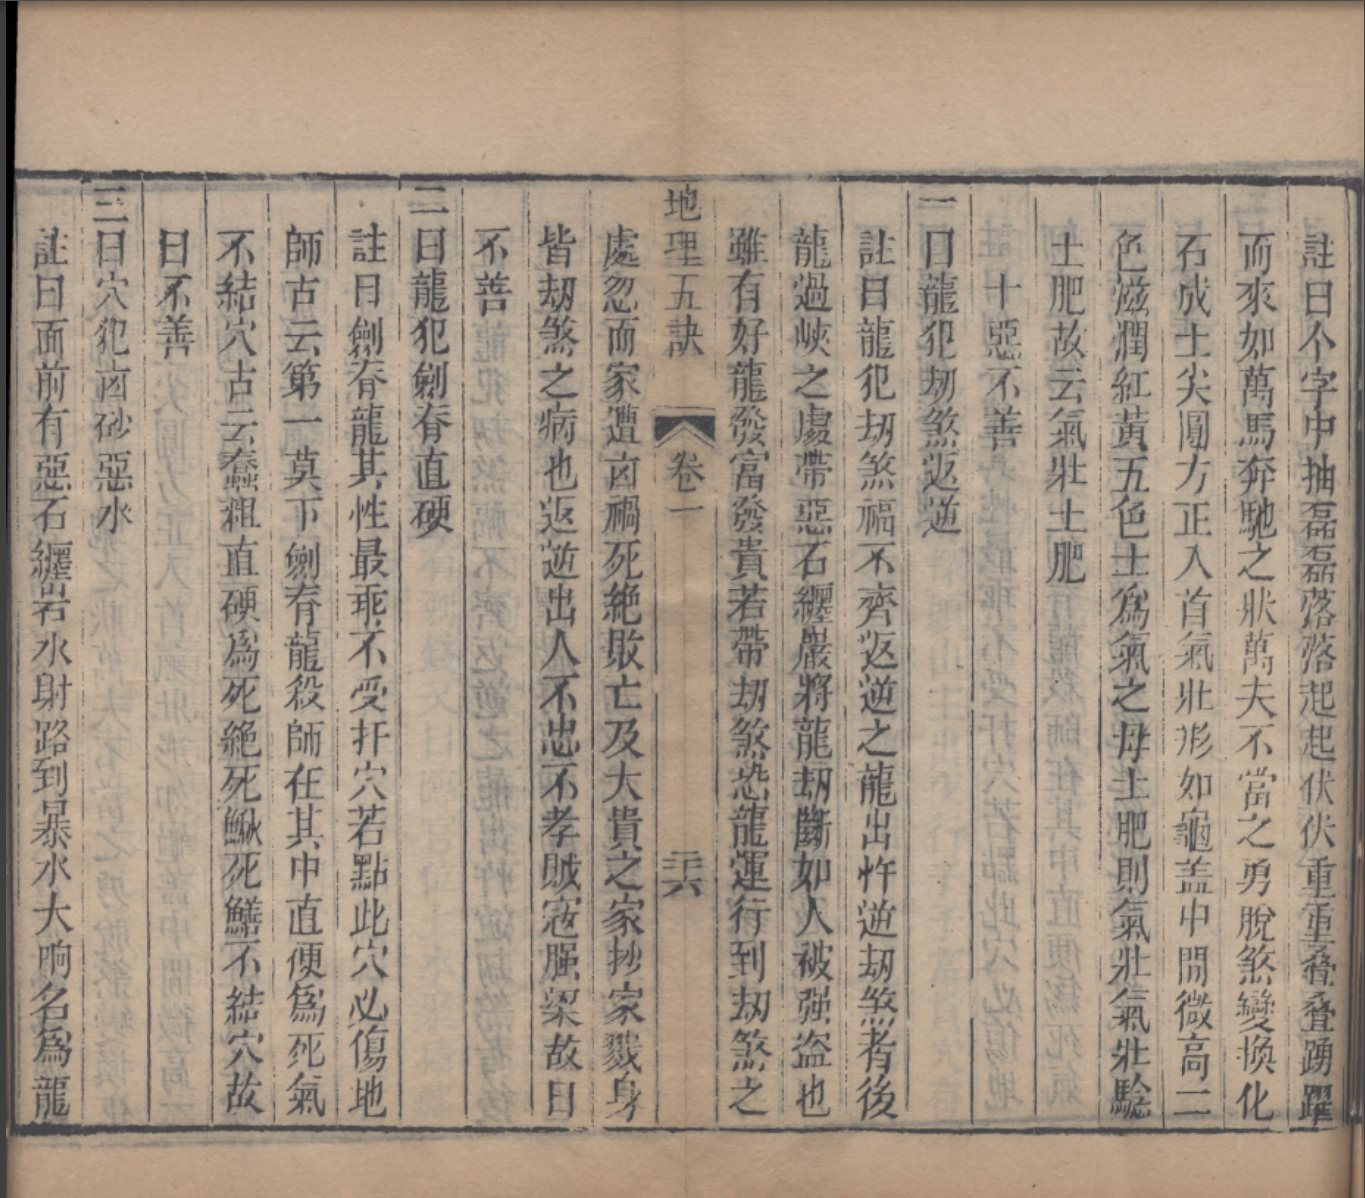 註曰个字中抽磊磊落落起起伏伏重重叠叠踴躍
而來如萬馬奔馳之狀萬夫不當之勇脫煞變換化
石成土尖圓方正入首氣壯形如龜盖中間微高二
色滋潤紅黃五色土爲氣之母土肥則氣壯氣壯騐
土肥故云氣壯土肥
十惡不善
一曰龍犯刼煞返逆
註曰龍犯刼煞福不齊返逆之龍出忤逆刼煞者後
龍過峽之處帶惡石纒巖將龍刼斷如人被强盗也
雖有好龍發富發貴若帶刼煞恐龍運行到刼煞之
地理五訣 卷一 二十六
處忽而家遭凶禍死絶敗亡及大貴之家抄家戮身
皆刼煞之病也返逆出人不忠不孝賊寇强梁故曰
不善
二曰龍犯劍脊直硬
註曰劍脊龍其性最乖不受扦穴若點此穴必傷地
師古云第一莫下劍脊龍殺師在其中直便爲死氣
不結穴古云蠢粗直硬爲死絶死鰍死鱔不結穴故
曰不善
三曰穴犯凶砂惡水
註曰面前有惡石纒岩水射路到暴水大响名爲龍